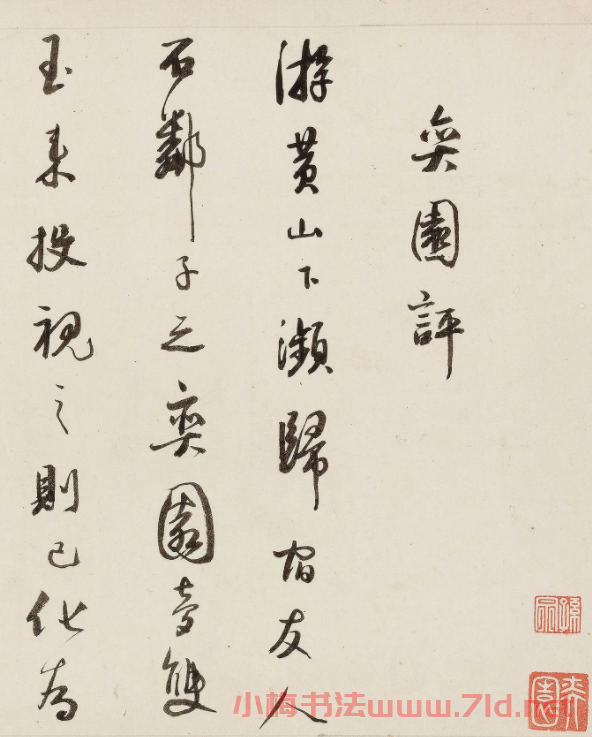 奕園評
游黃山下瀨歸宿友人
石鄰子之奕園夢雙
玉來投視之則已化為
奕園
小梅书法www.7ld.net